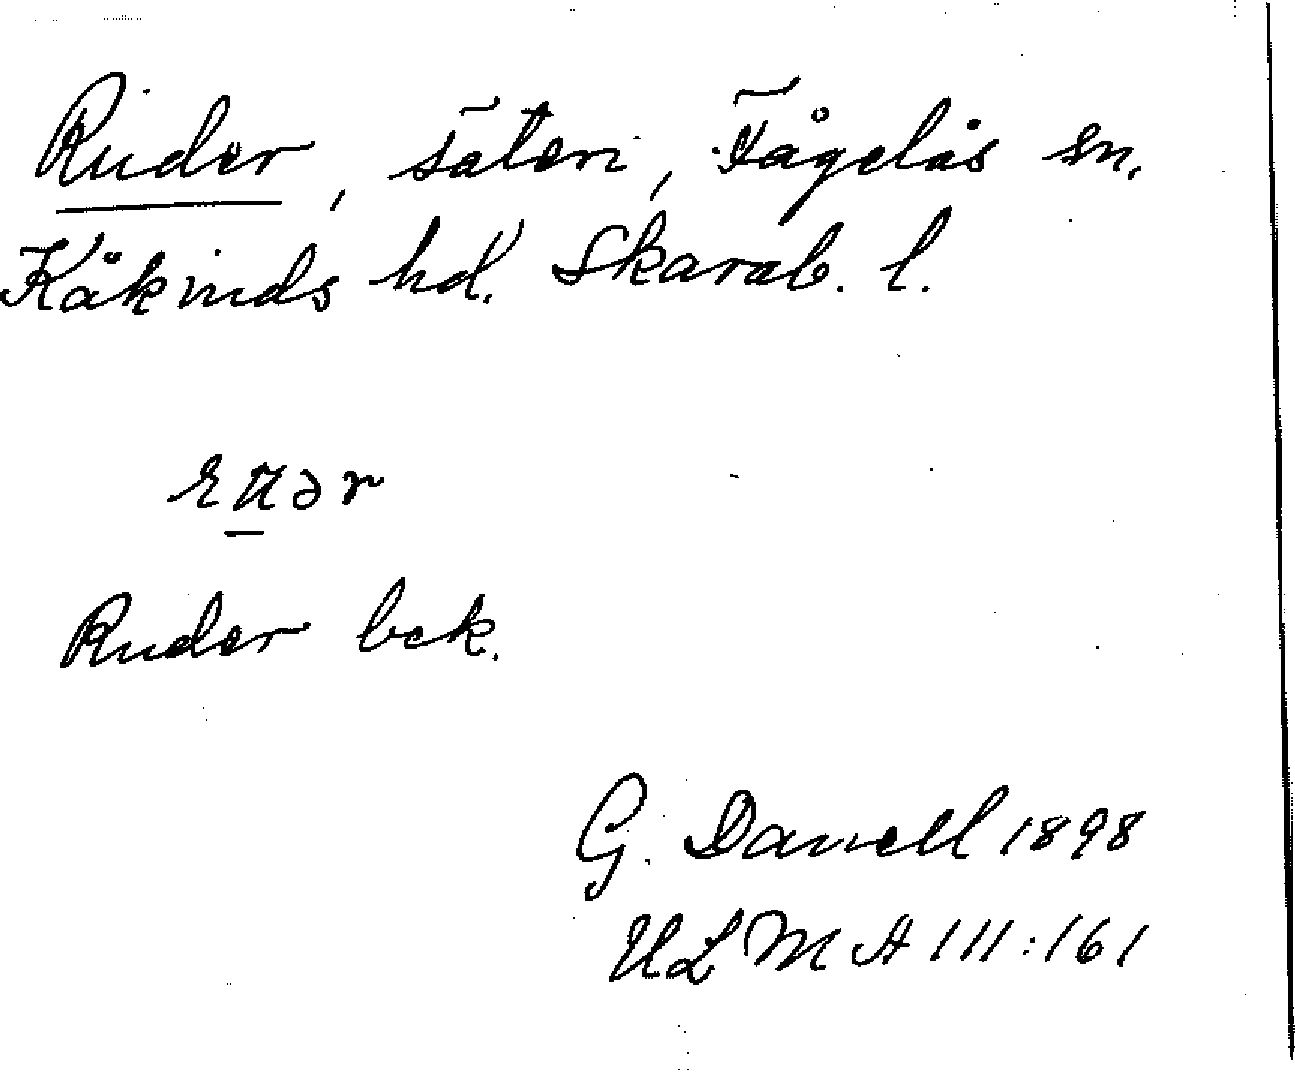 Ruder, säteri, Fågelås sn.
Kåkinds hd. Skarab. l.
Ruder bek.
G. Danell 1898
ULMA 111:161